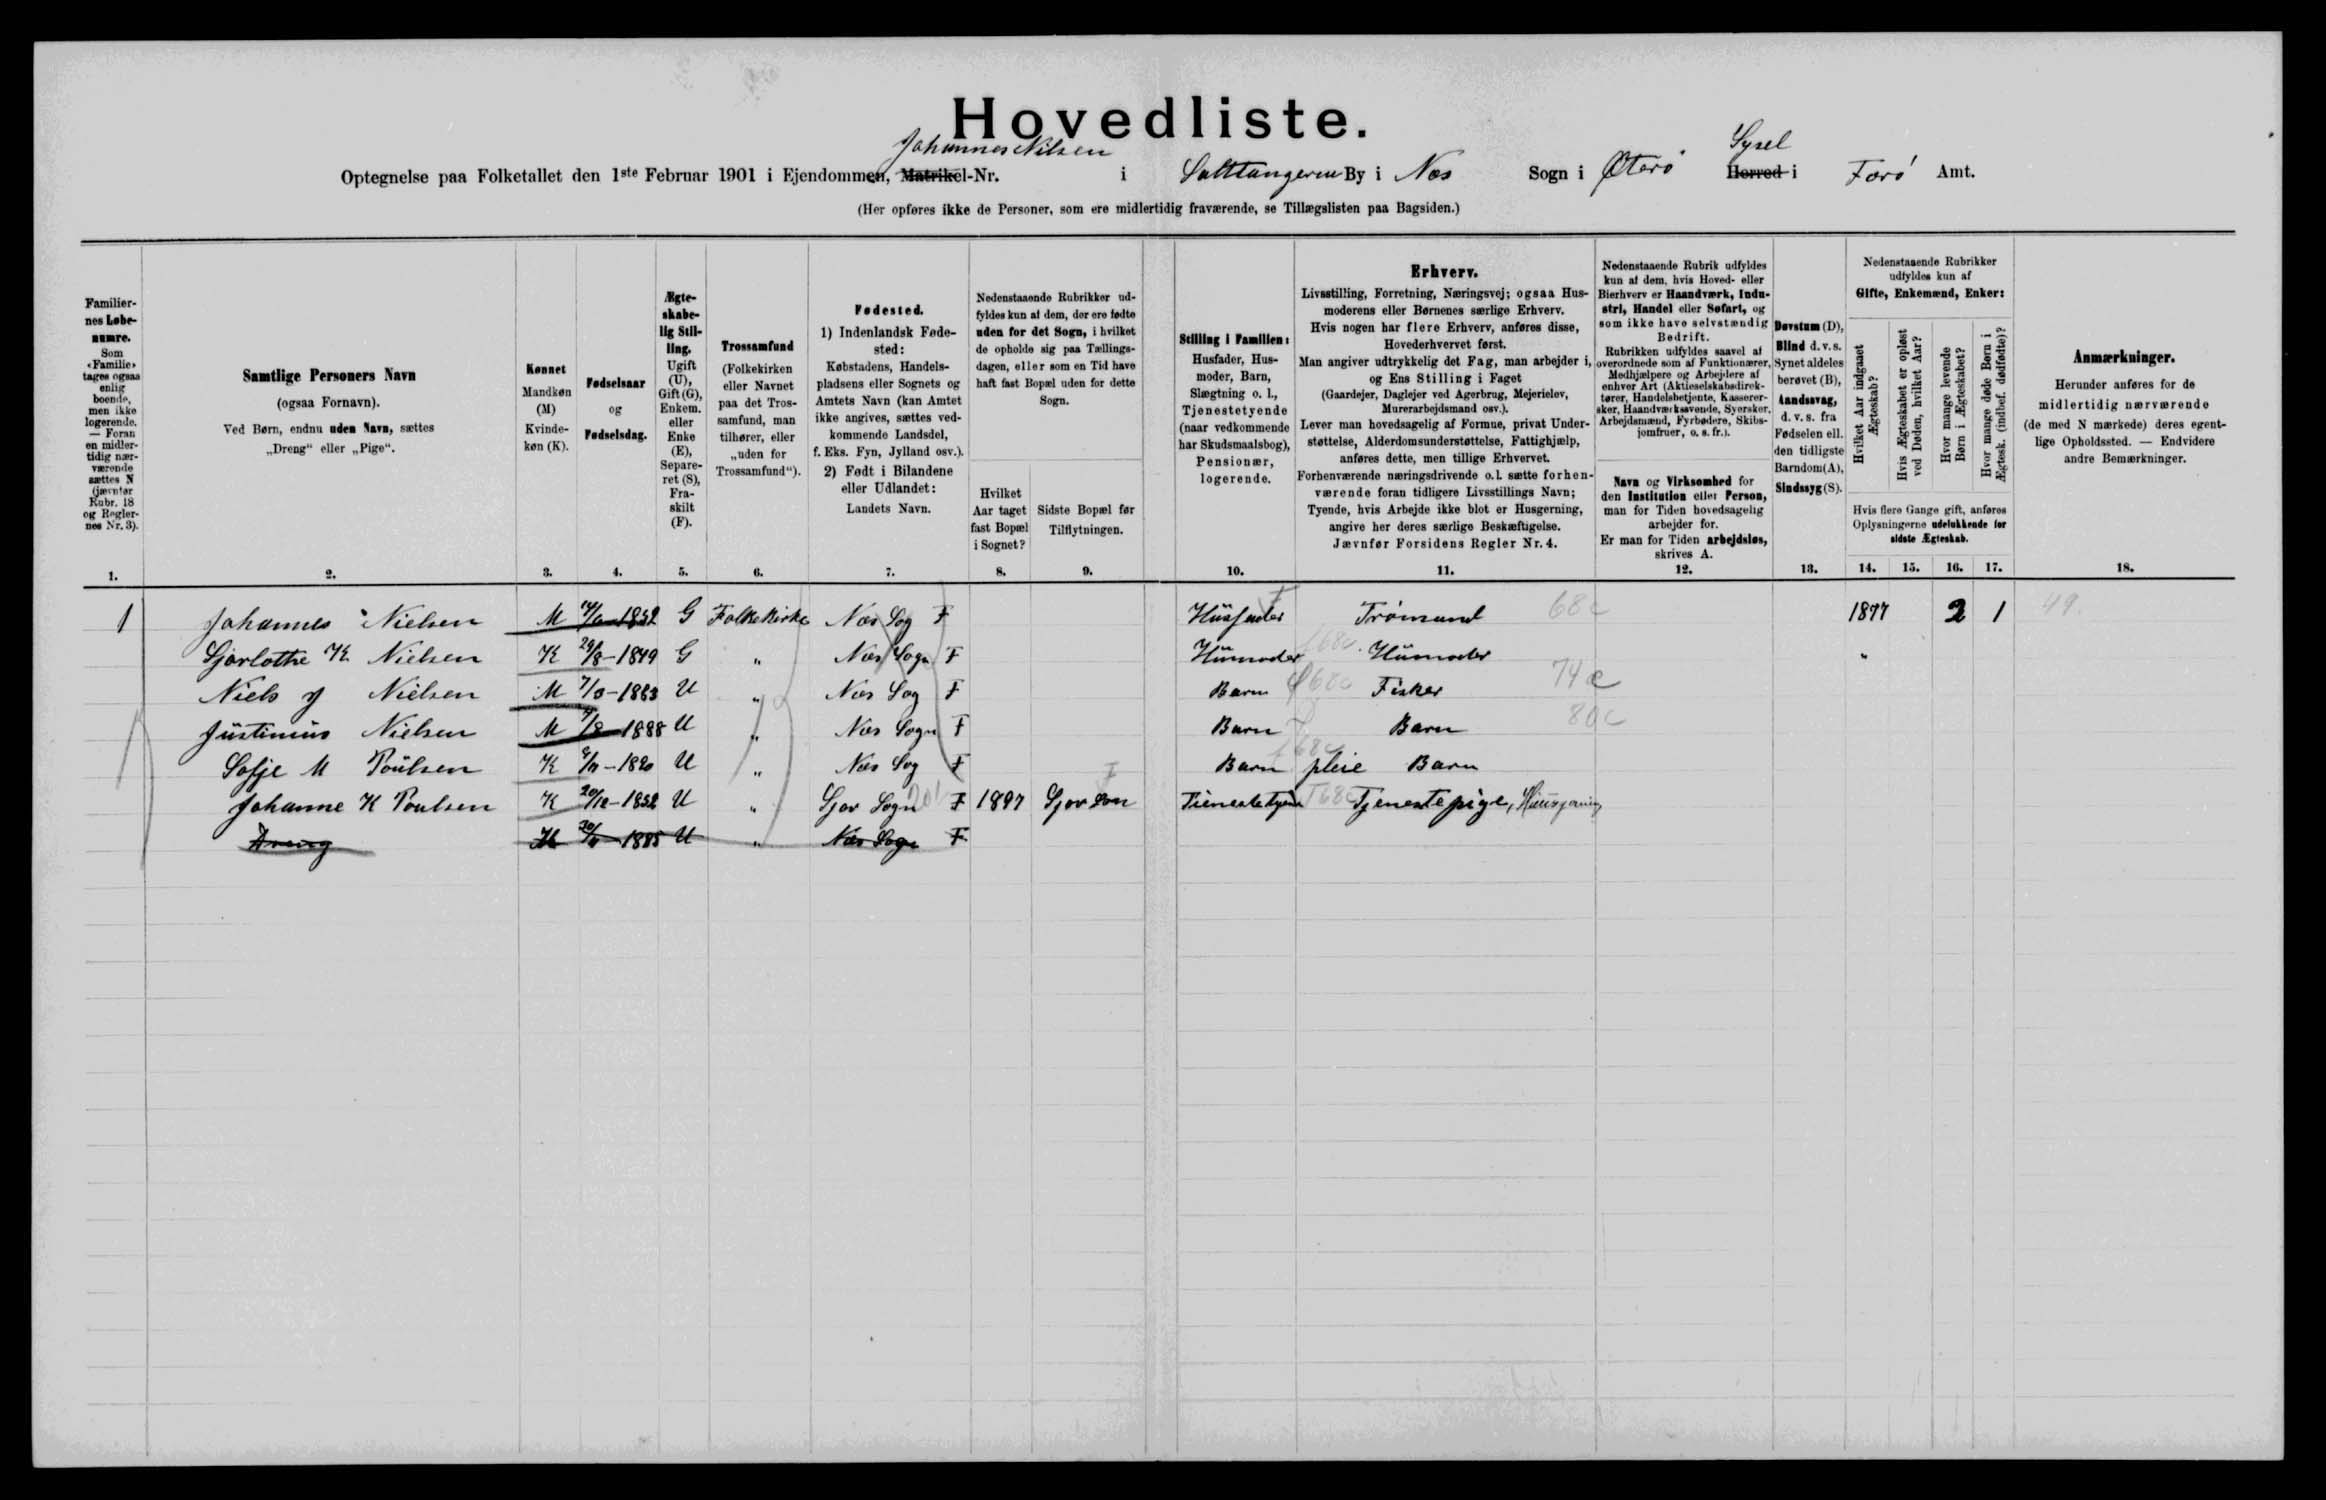 Hovedliste.
Johannes Nilsen
Sysel
Optegnelse paa Folketallet den 1ste Februar 1901 i Ejendommen, Matrikel-Nr. i Salttangerne By i Næs Sogn i Østerø Herred i Færø Amt.
(Her opføres ikke de Personer, som ere midlertidig fraværende, se Tillægslisten paa Bagsiden.)
Familier-
nes Løbe-
numre.
Som
«Familie»
tages ogsaa
enlig
boende,
men ikke
logerende.
— Foran
en midler-
tidig nær-
værende
sættes N
(jævnfør
Rubr. 18
og Regler-
nes Nr. 3).
1.
Samtlige Personers Navn
(ogsaa Fornavn).
Ved Børn, endnu uden Navn, sættes
„Dreng“ eller „Pige“.
2.
Kønnet
Mandkøn
(M)
Kvinde-
køn (K).
3.
Fødselsaar
og
Fødselsdag.
4.
Ægte-
skabe-
lig Stil-
ling.
Ugift
(U),
Gift (G),
Enkem.
eller
Enke
(E),
Separe-
ret (S),
Fra-
skilt
(F).
5.
Trossamfund
(Folkekirken
eller Navnet
paa det Tros-
samfund, man
tilhører, eller
„uden for
Trossamfund“).
6.
Fødested.
1) Indenlandsk Føde-
sted:
Købstadens, Handels-
pladsens eller Sognets og
Amtets Navn (kan Amtet
ikke angives, sættes ved-
kommende Landsdel,
f. Eks. Fyn, Jylland osv.).
2) Født i Bilandene
eller Udlandet:
Landets Navn.
7.
Nedenstaaende Rubrikker ud-
fyldes kun af dem, der ere fødte
uden for det Sogn, i hvilket
de opholde sig paa Tællings-
dagen, eller som en Tid have
haft fast Bopæl uden for dette
Sogn.
Hvilket
Aar taget
fast Bopæl
i Sognet?
8.
Sidste Bopæl før
Tilflytningen.
9.
Stilling i Familien:
Husfader, Hus-
moder, Barn,
Slægtning o. l.,
Tjenestetyende
(naar vedkommende
har Skudsmaalsbog),
Pensionær,
logerende.
10.
Erhverv.
Livsstilling, Forretning, Næringsvej; ogsaa Hus-
moderens eller Børnenes særlige Erhverv.
Hvis nogen har flere Erhverv, anføres disse,
Hovederhvervet først.
Man angiver udtrykkelig det Fag, man arbejder i,
og Ens Stilling i Faget
(Gaardejer, Daglejer ved Agerbrug, Mejerielev,
Murerarbejdsmand osv.).
Lever man hovedsagelig af Formue, privat Under-
støttelse, Alderdomsunderstøttelse, Fattighjælp,
anføres dette, men tillige Erhvervet.
Forhenværende næringsdrivende o. l. sætte forhen-
værende foran tidligere Livsstillings Navn;
Tyende, hvis Arbejde ikke blot er Husgerning,
angive her deres særlige Beskæftigelse.
Jævnfør Forsidens Regler Nr. 4.
11.
Nedenstaaende Rubrik udfyldes
kun af dem, hvis Hoved- eller
Bierhverv er Haandværk, Indu-
stri, Handel eller Søfart, og
som ikke have selvstændig
Bedrift.
Rubrikken udfyldes saavel af
overordnede som af Funktionærer,
Medhjælpere og Arbejdere af
enhver Art (Aktieselskabsdirek-
tører, Handelsbetjente, Kasserer-
sker, Haandværkssvende, Syersker,
Arbejdsmænd, Fyrbødere, Skibs-
jomfruer, o. s. fr.).
Navn og Virksomhed for
den Institution eller Person,
man for Tiden hovedsagelig
arbejder for.
Er man for Tiden arbejdsløs,
skrives A.
12.
Døvstum (D),
Blind d. v. s.
Synet aldeles
berøvet (B),
Aandssvag,
d. v. s. fra
Fødselen ell.
den tidligste
Barndom (A),
Sindssyg (S).
13.
Nedenstaaende Rubrikker
udfyldes kun af
Gifte, Enkemænd, Enker:
Hvilket Aar indgaaet
Ægteskab?
Hvis Ægteskabet er opløst
ved Døden, hvilket Aar?
Hvor mange levende
Børn i Ægteskabet?
Hvor mange døde Børn i
Ægtesk. (indbef. dødfødte)?
Hvis flere Gange gift, anføres
Oplysningerne udelukkende for
sidste Ægteskab.
14. 15. 16. 17.
Anmærkninger.
Herunder anføres for de
midlertidig nærværende
(de med N mærkede) deres egent-
lige Opholdssted. — Endvidere
andre Bemærkninger.
18.
1 Johannes Nielsen M 1832 G Folkekirke Næs Sog F Hüsfader Trømand 68c 1877 2 1 49.
Sjarlothe K Nielsen K 29/8-1849 G „ Næs Sogn F Hümoder 68c Hümoder „
Niels J Nielsen M 1883 U „ Næs Sog F Barn 68c Fisker 74c
Jüstinüs Nielsen M 1888 U „ Næs Sogn F Barn Barn 80c
Sofje M Poülsen K U „ Næs Sog F Barn 68c pleie Barn
Johanne K Poulsen K 20/12-1832 U „ Gjov Sogn F 1897 Gjov Tienestetyene 68c Tjenestepige, Hüsgjerning
Dreng 1885 U „ Næs Sogn F